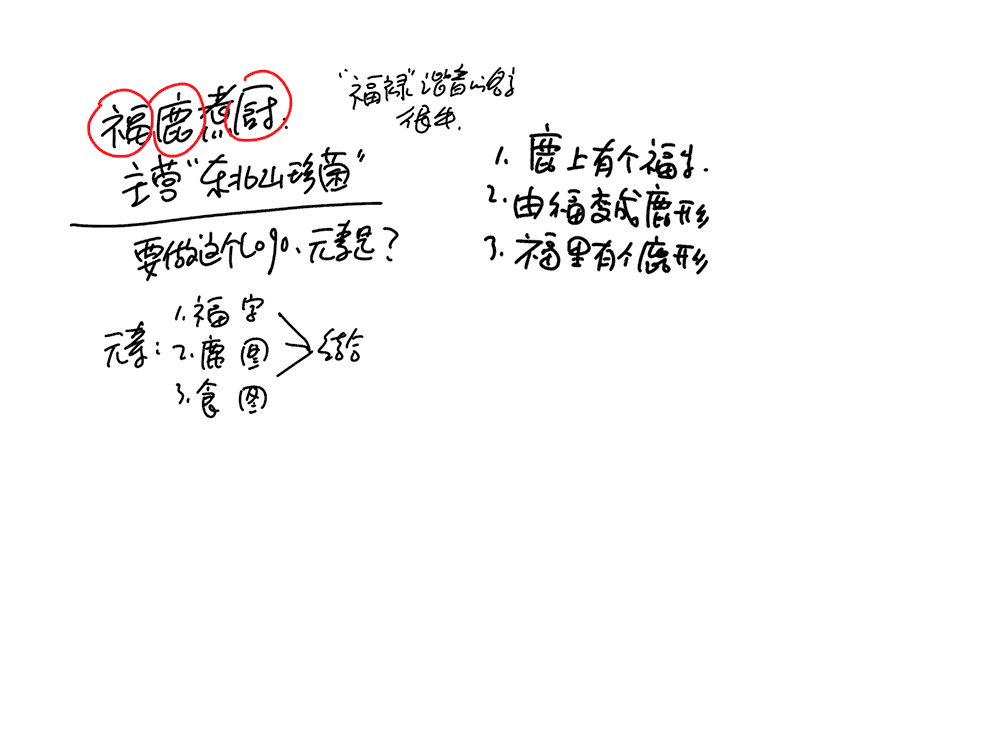 福鹿煮厨.
"福禄"谐音
很先.
主营"东北山珍菌"
要做这个logo、元素是?
元素:
1.福 字
2.鹿 图
3.食 图
结合
1. 鹿上有个福字.
2.由福变成鹿形
3.福里有个鹿形